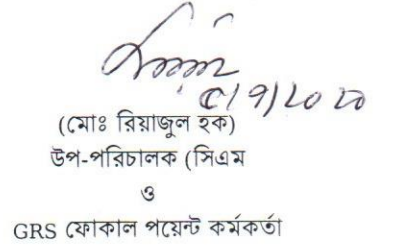 ৫/৭/২০২০
(মোঃ রিয়াজুল হক)
উপ-পরিচালক (সিএম
ও
GRS ফোকাল পয়েন্ট কর্মকর্তা